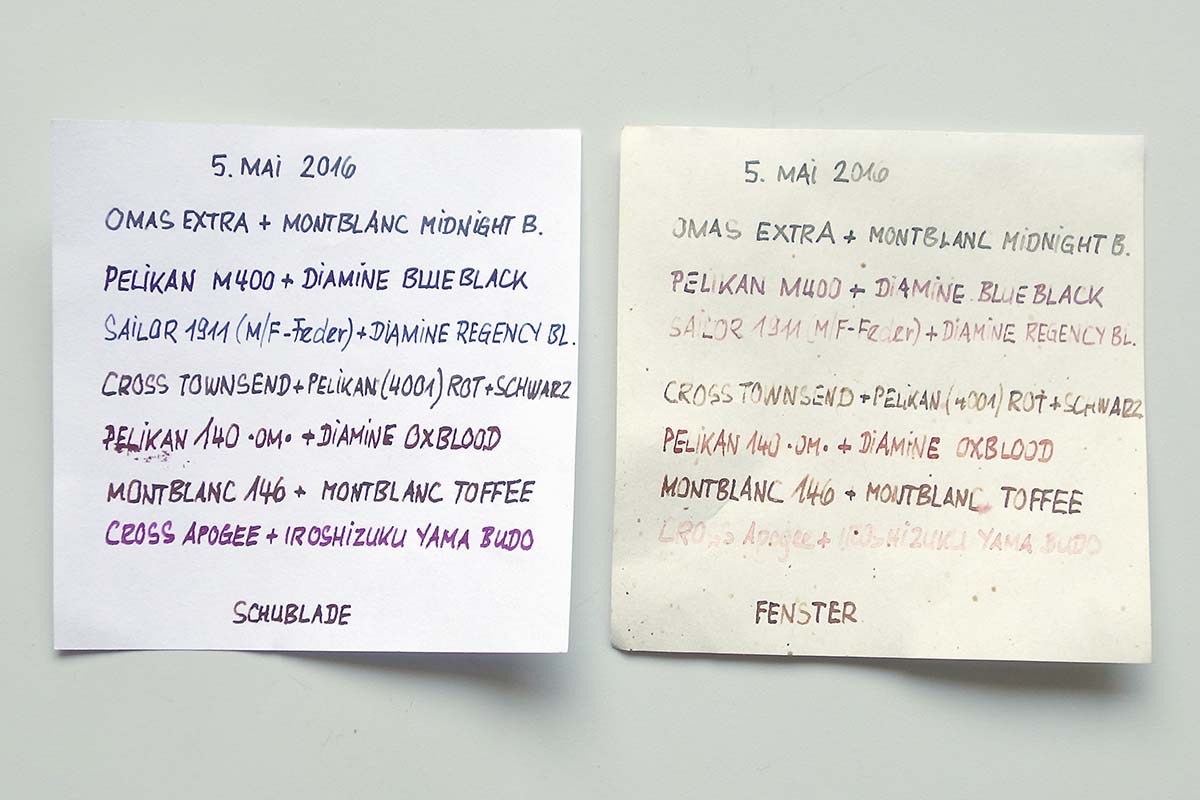 5. MAi 2016
OMAS EXTRA + MONTBLANC MiDNiGHT B.
PELiKAN M400 + DiAMiNE BLUEBLACK
SAiLOR 1911 (M/F-Feder) + DiAMINE REGENCY BL.
CROSS TOWNSEND + PELiKAN (4001) ROT + SCHWARZ
PELiKAN 140 •OM• + DiAMINE OXBLOOD
MONTBLANC 146 + MONTBLANC TOFFEE
CROSS APOGEE + IROSHIZUKU YAMA BUDO
SCHUBLADE
5. MAi 2016
OMAS EXTRA + MONTBLANC MiDNiGHT B.
PELiKAN M400 + DiAMiNE BLUE BLACK
SAiLOR 1911 (M/F-Feder) + DiAMINE REGENCY BL.
CROSS TOWNSEND + PELiKAN (4001) ROT + SCHWARZ
PELiKAN 140 •OM• + DiAMiNE OXBLOOD
MONTBLANC 146 + MONTBLANC TOFFEE
CROSS Apogee + IROSHiZUKU YAMA BUDO
FENSTER